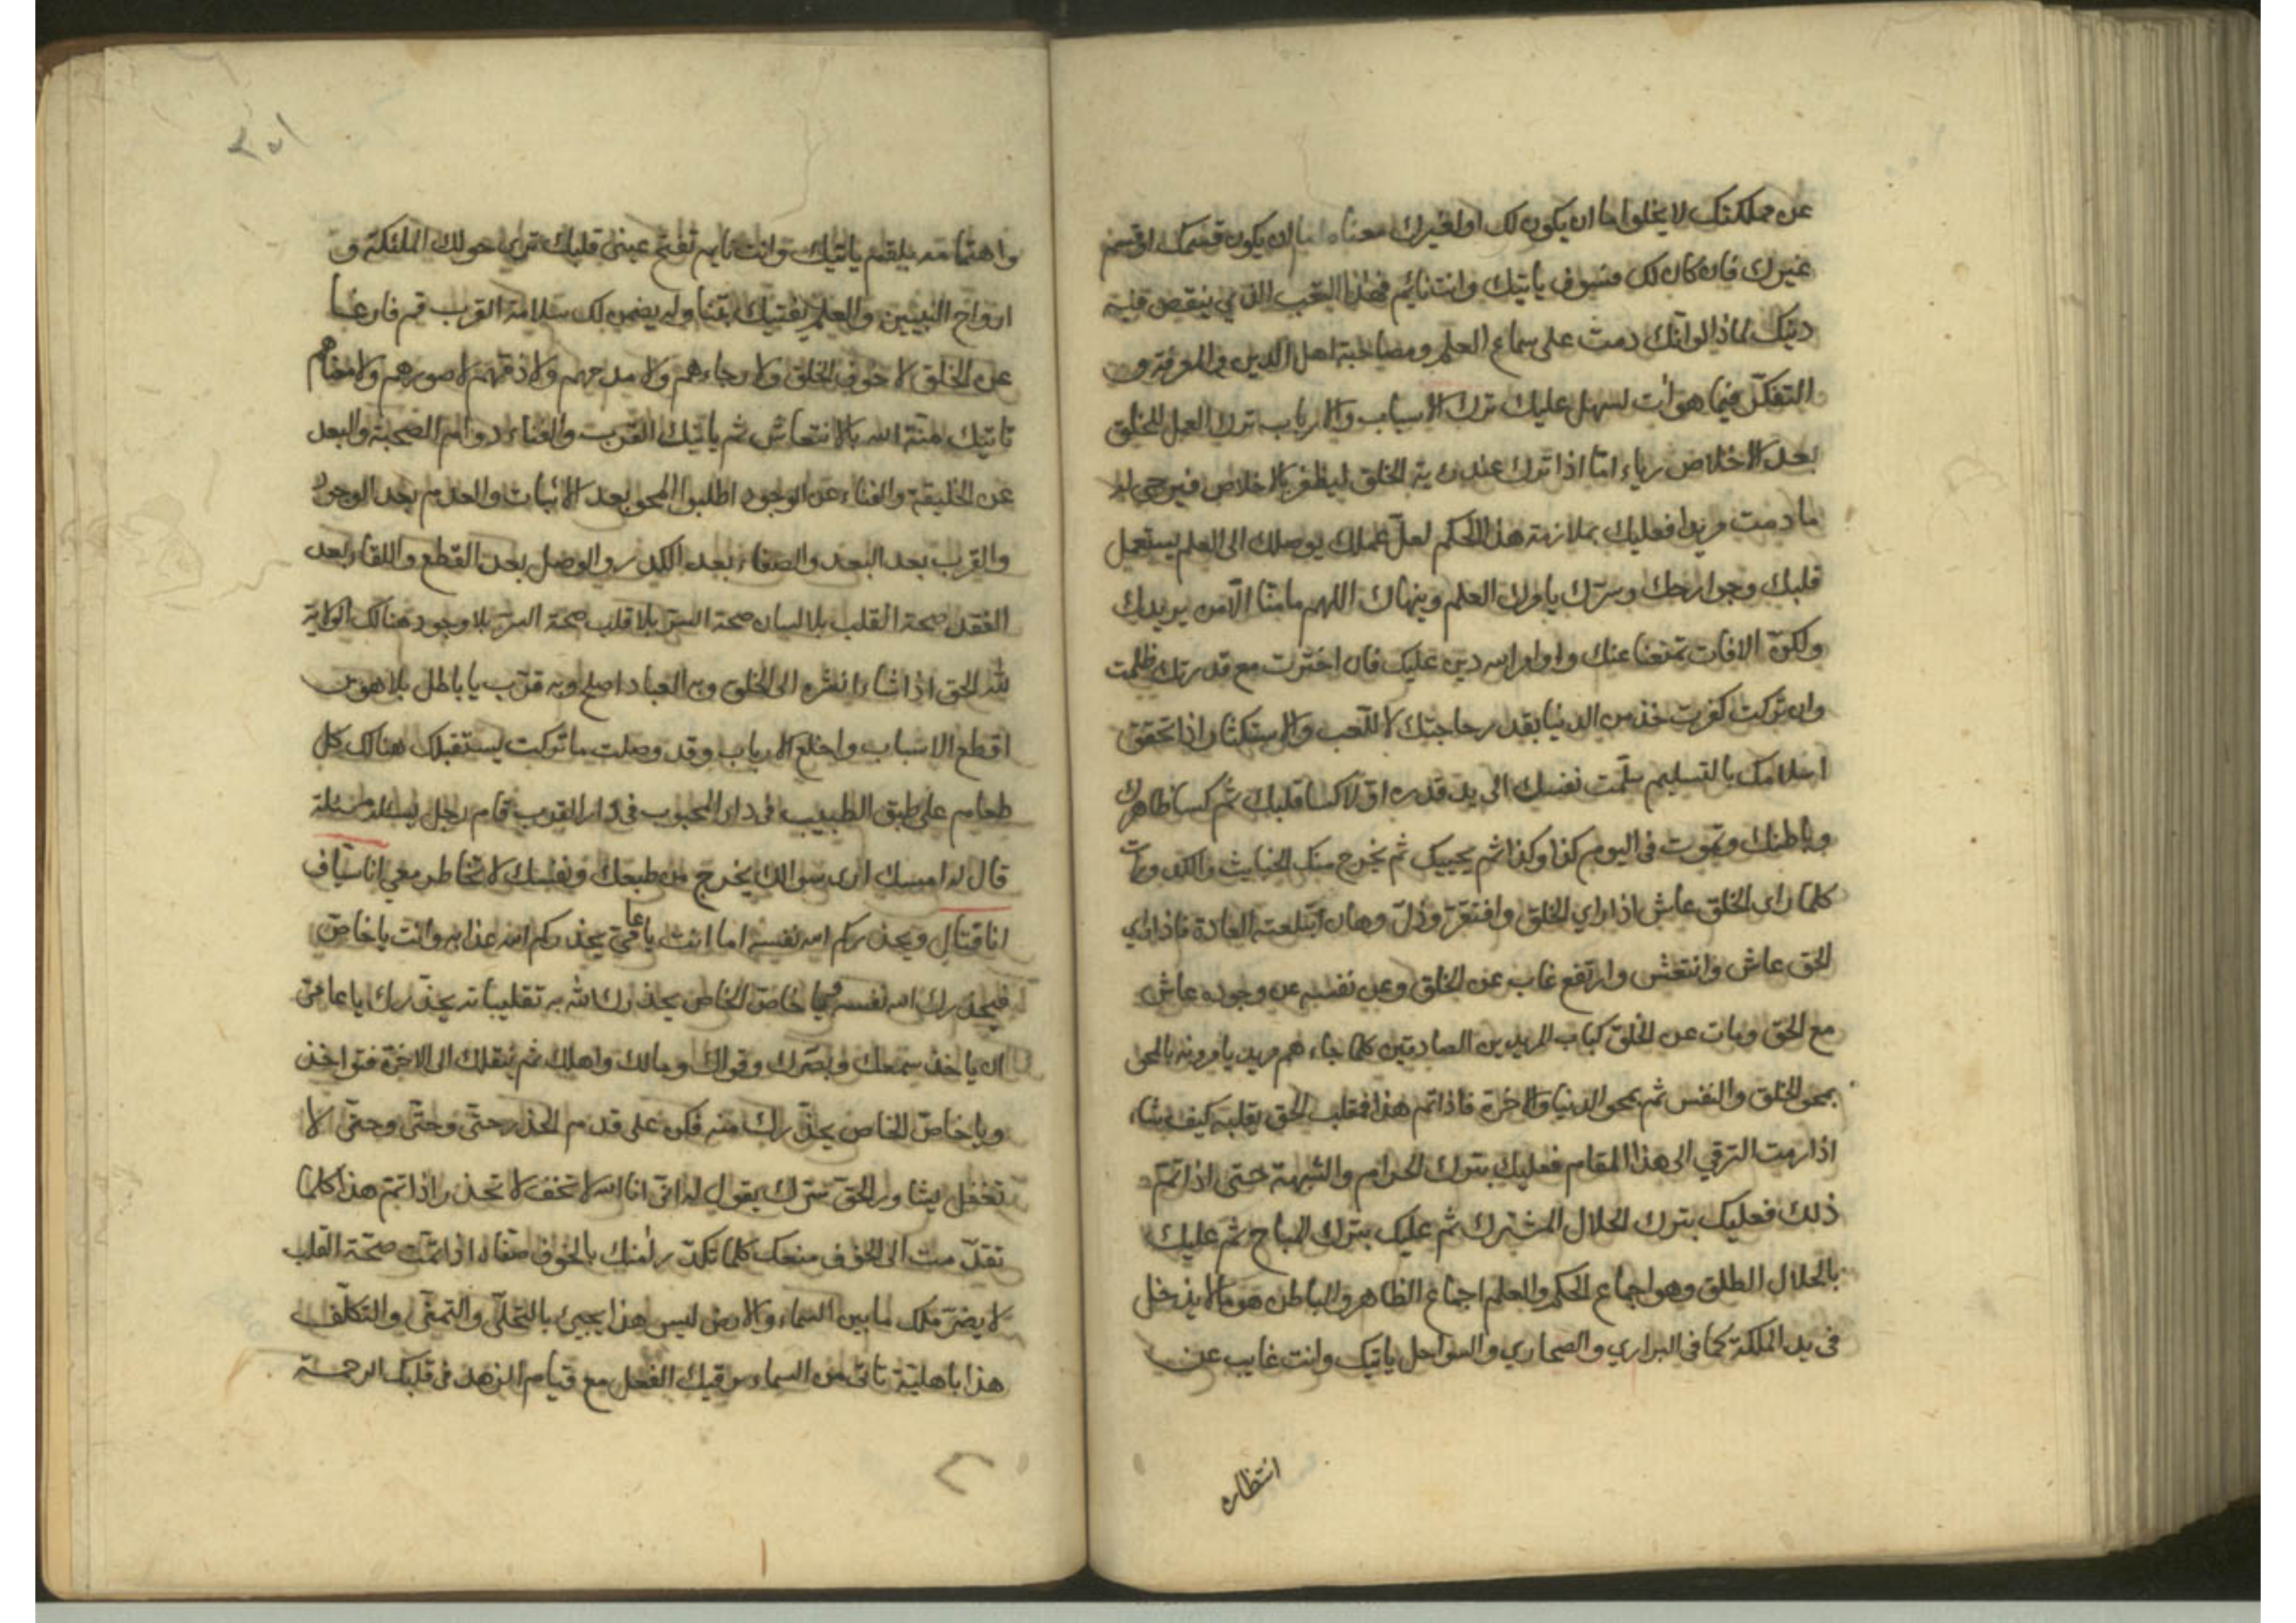 عن مملكتك لا يخلوا ما ان يكون لك او لغيرك معناه اما ان يكون قسمك او قسم
غيرك فان كان لك فسوف ياتيك وانت نائم فهذا التعب الذي ينقص قلبه
دينك لماذا لو انك دمت على سماع العلم ومصاحبة اهل الدين والمعرفة و
التفكر فيما هو ات لسهل عليك ترك الاسباب والارباب ترك العمل للخلق
بعد الاخلاص رياء اما اذا ترك عند رؤية الخلق ليظفر بالاخلاص فيرجى له
ما دمت مريدا فعليك بملازمة هذا الحكم لعل عملك يوصلك الى العلم يستعمل
قلبك وجوارحك وسرك يامرك العلم وينهاك اللهم ما منا الا من يريدك
ولكن الافات تمنعنا عنك واوامر الله دين عليك فان اخرت مع قدرتك ظلمت
وان تركت كفرت خذ من الدنيا بقدر حاجتك لا للعب والاستكثار اذا تحقق
اسلامك بالتسليم سلمت نفسك الى يد قدره اولا كسا قلبك ثم كسا ظاهرك
وباطنك وتموت في اليوم كذا وكذا ثم يحييك ثم يخرج منك الخبايث والكدورات
كلما راى الخلق عاش اذا راي الخلق وافتقر وذل وهان ابتلعته العادة فاذا راي
الحق عاش وانتعش وارتفع غاب عن الخلق وعن نفسه عن وجوده عاش
مع الحق ومات عن الخلق كباب المريدين الصادقين كلما جاءهم مريد يامرونه بالمحو
بمحو الخلق والنفس ثم بمحو الدنيا والاخرة فاذا تم هذا فقلب الحق يقلبه كيف يشاء
اذا رمت الترقي الى هذا المقام فعليك بترك الحرام والشبهة حتى اذا تم
ذلك فعليك بترك الحلال المشترك ثم عليك بترك المباح ثم عليك
بالحلال المطلق وهو اجماع الحكم والعلم اجماع الظاهر والباطن هو ما لا يدخل
في يد المملكة كما في البراري والصحاري والسواحل ياتيك وانت غايب عن
انتظاره
٣٥١
واهتمامه يلقم ياتيك وانت نايم تفتح عيني قلبك ترى حولك الملئكة و
ارواح النبيين والعلم يفتيك بتنا وله يضمن لك سلامة القرب قم فارغا
عن الخلق لا خوف الخلق ولا رجاءهم ولا مدحهم ولا ذمهم لا صورهم ولا معناهم
تاتيك منة الله بالانتعاش ثم ياتيك القرب والغناء دوام الصحبة والبعد
عن الخليقة والفناء عن الوجود اطلبوا المحو بعد الاثبات والعدم بعد الوجود
والقرب بعد البعد والصفاء بعد الكدر والوصل بعد القطع واللقاء بعد
الفقد صحة القلب بلا لسان صحة السر بلا قلب صحة السر بلا وجود هنالك الولاية
لله الحق اذا شاء انشره الى الخلق وبه العباد اصلح وبه قرب يا باطل بلا هوس
اقطع الاسباب واخلع الارباب وقد وصلت ما تركت يستقبلك هنالك كل
طعام على طبق الطبيب في دار المحبوب في دار القرب قام رجل يسئله مسئلة
قال له امسك ارى سوالك يخرج من طبعك ونفسك لا تخاطر معي انا سياف
انا قتال ويحذركم الله نفسه اما انت يا عامي يحذركم الله عذابه وانت يا خاص
فيحذرك الله نفسه ويا خاص الخاص يحذرك الله بتقليباته يحذرك يا عامي
ان ياخذ سمعك وبصرك وقواك ومالك واهلك ثم ينقلك الى الاخرة فتواخذ
ويا خاص الخاص يحذرك منه فكن على قدم الحذر حتى وحتى وحتى لا
تغفل يشاور الحق سرك يقول له اني انا الله لا تخف لا تحذر اذا تم هذا كلما
تقدمت الى الخوف منعك كلما تكدر امنك بالخوف صفاه اذا تمت صحة القلب
لا يضر ملك ما بين السماء والارض ليس هذا يجيئ بالتحلي والتمني والتكلف
هذا باهلية تاتي من السماء سر فيك الفعل مع قيام الزهد في قلبك الرحمة